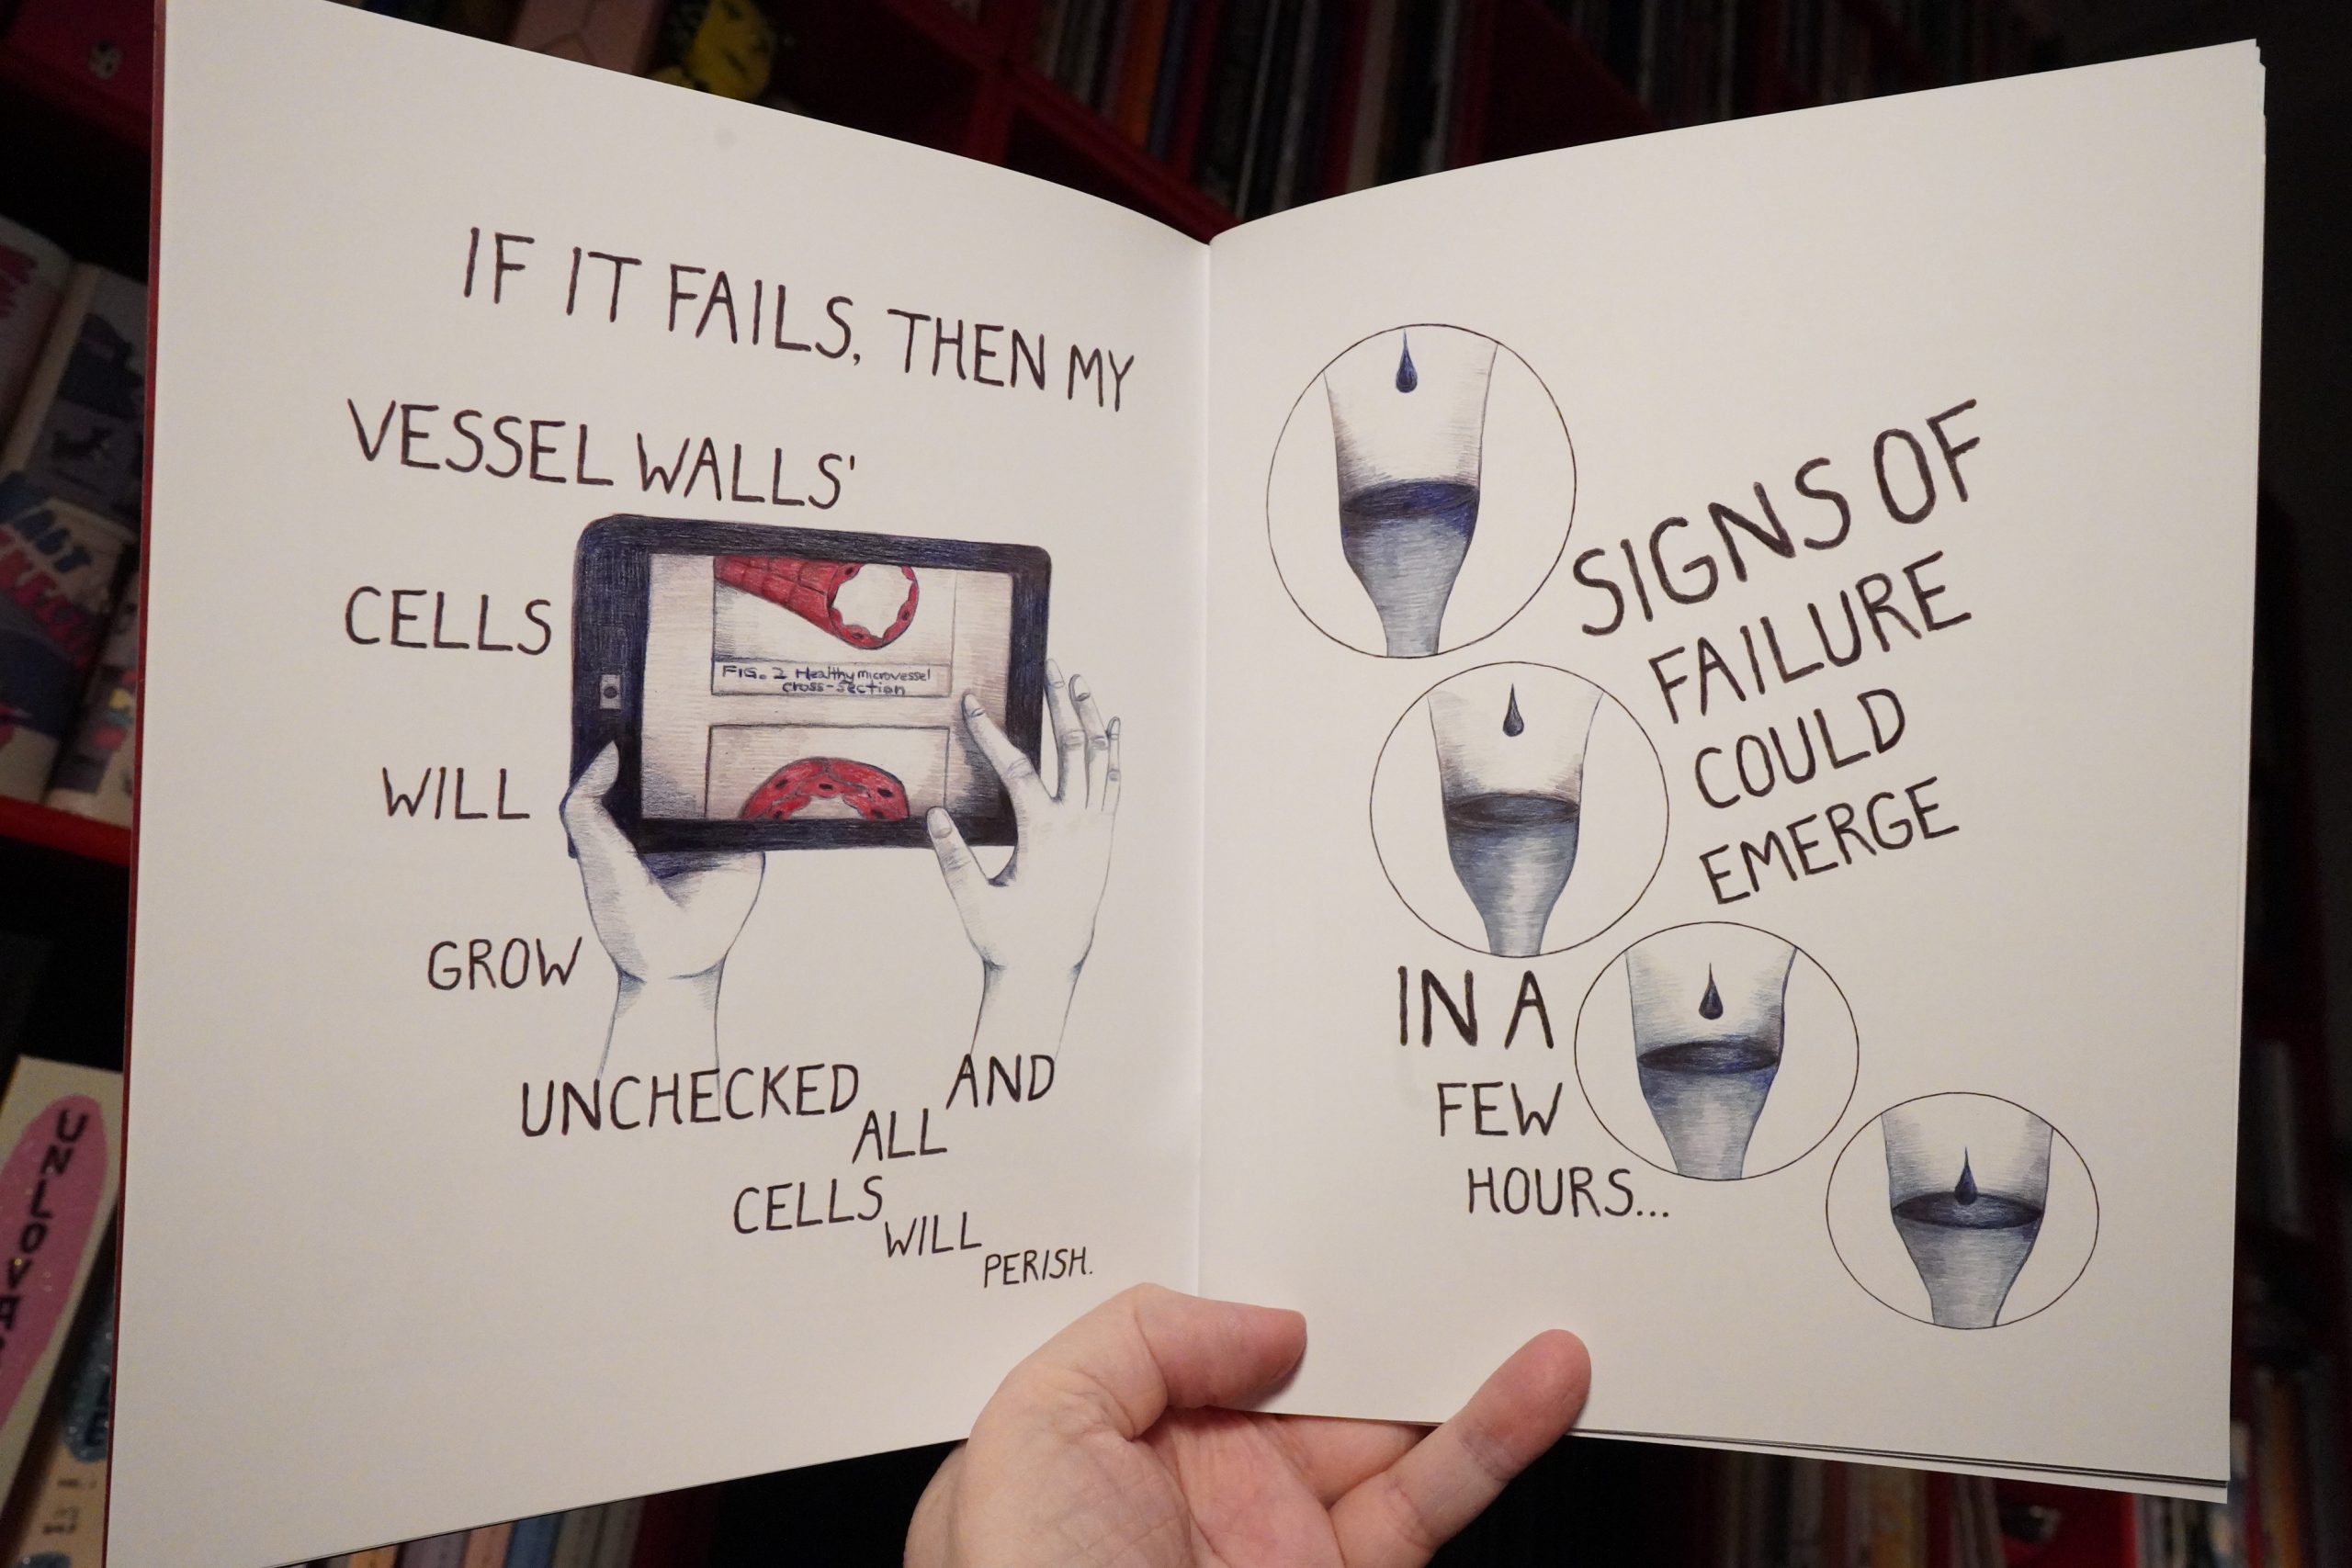 IF IT FAILS, THEN MY
VESSEL WALLS'
CELLS
FIG. 2 Healthy microvessel
cross-section
WILL
GROW
UNCHECKED AND
ALL
CELLS
WILL
PERISH.
SIGNS OF
FAILURE
COULD
EMERGE
IN A
FEW
HOURS...
UNLOVE